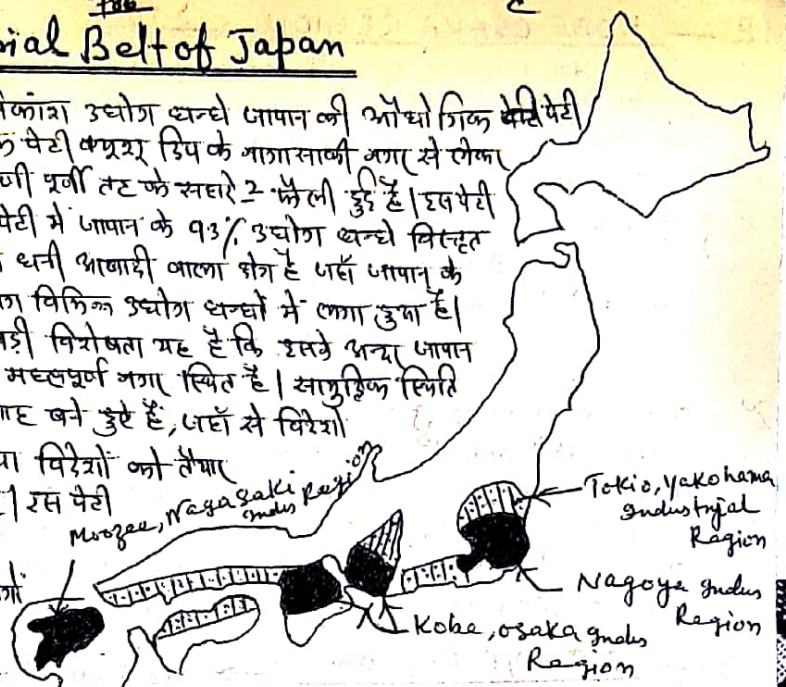 ial Belt of Japan
उद्योग धन्धे जापान की औद्योगिक पेटी
पेटी क्यूशू द्विप के नागासाकी नगर से लेकर
पूर्वी तट के सहारे 2 फैली हुई है। इस पेटी
पेटी में जापान के 93% उद्योग धन्धे विस्तृत
घनी आबादी वाला क्षेत्र है जहाँ जापान के
विभिन्न उद्योग धन्धों में लगा हुआ है।
विशेषता यह है कि इसके अन्दर जापान
महत्वपूर्ण नगर स्थित है। सामुद्रिक स्थिति
बने हुए हैं, जहाँ से विदेशों
विदेशों को तैयार
। इस पेटी
Moozee, Nagasaki Indus Region
Tokio, Yakohama
Industrial
Region
Nagoya Indus
Region
Kobe, Osaka Indus
Region